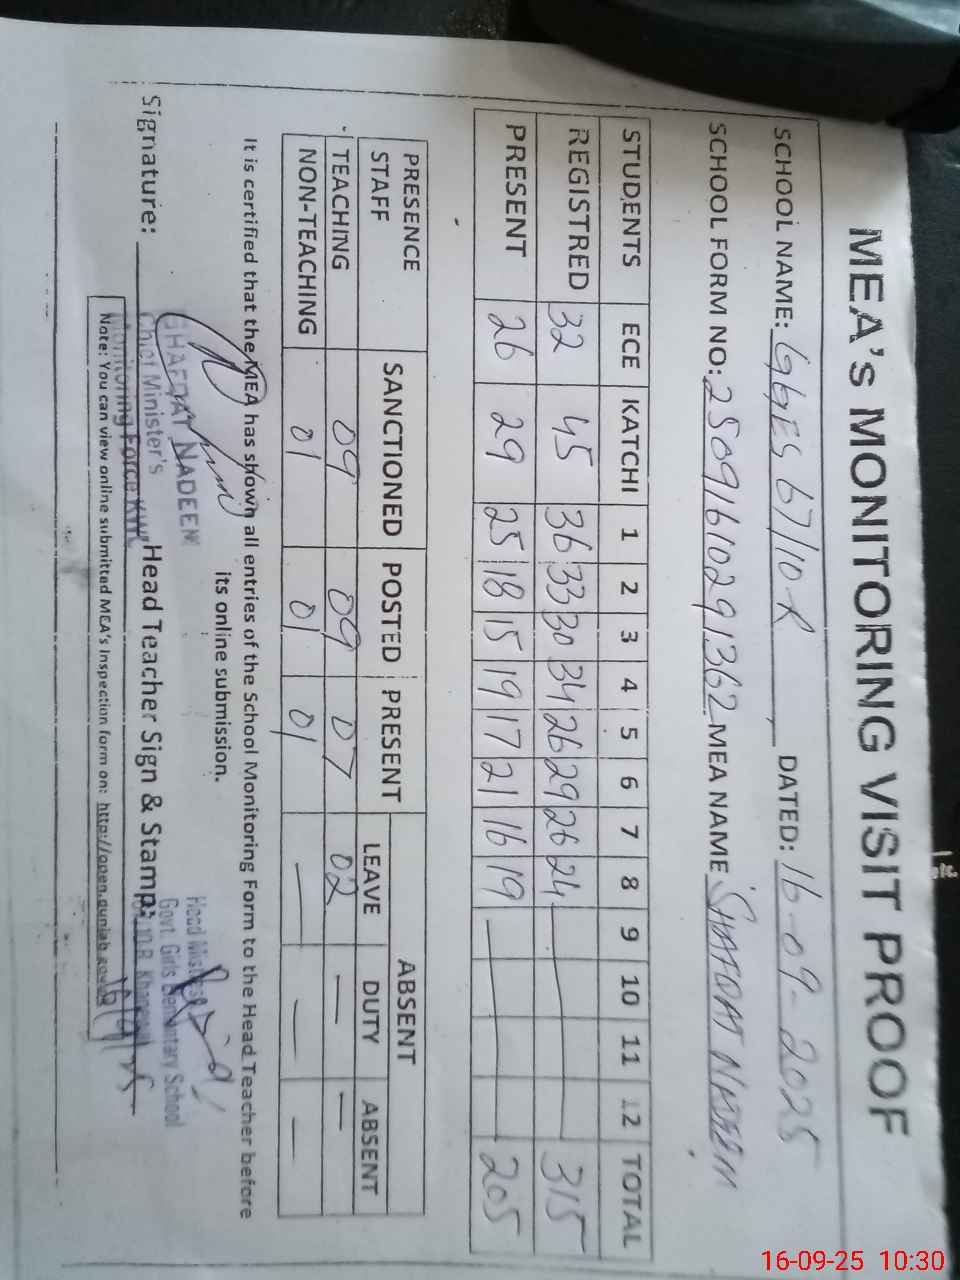 MEA's MONITORING VISIT PROOF
SCHOOL NAME: GGES 67/10R DATED: 16-09-2025
SCHOOL FORM NO: 25091610291362 MEA NAME SHAFQAT NADEEM
STUDENTS ECE KATCHI 1 2 3 4 5 6 7 8 9 10 11 12 TOTAL
REGISTRED 32 45 36 33 30 34 26 29 26 24 — 315
PRESENT 26 29 25 18 15 19 17 21 16 19 — 205
PRESENCE STAFF SANCTIONED POSTED PRESENT ABSENT
LEAVE DUTY ABSENT
TEACHING 09 09 07 02 — —
NON-TEACHING 01 01 01 — — —
It is certified that the MEA has shown all entries of the School Monitoring Form to the Head Teacher before
its online submission.
SHAFQAT NADEEM
Chief Minister's
Monitoring Force KWL
Head Mistress
Govt. Girls Elementary School
10.R Khanewal
Signature: Head Teacher Sign & Stamp:
Note: You can view online submitted MEA's Inspection form on: http://open.punjab.gov.pk
16-09-25 10:30